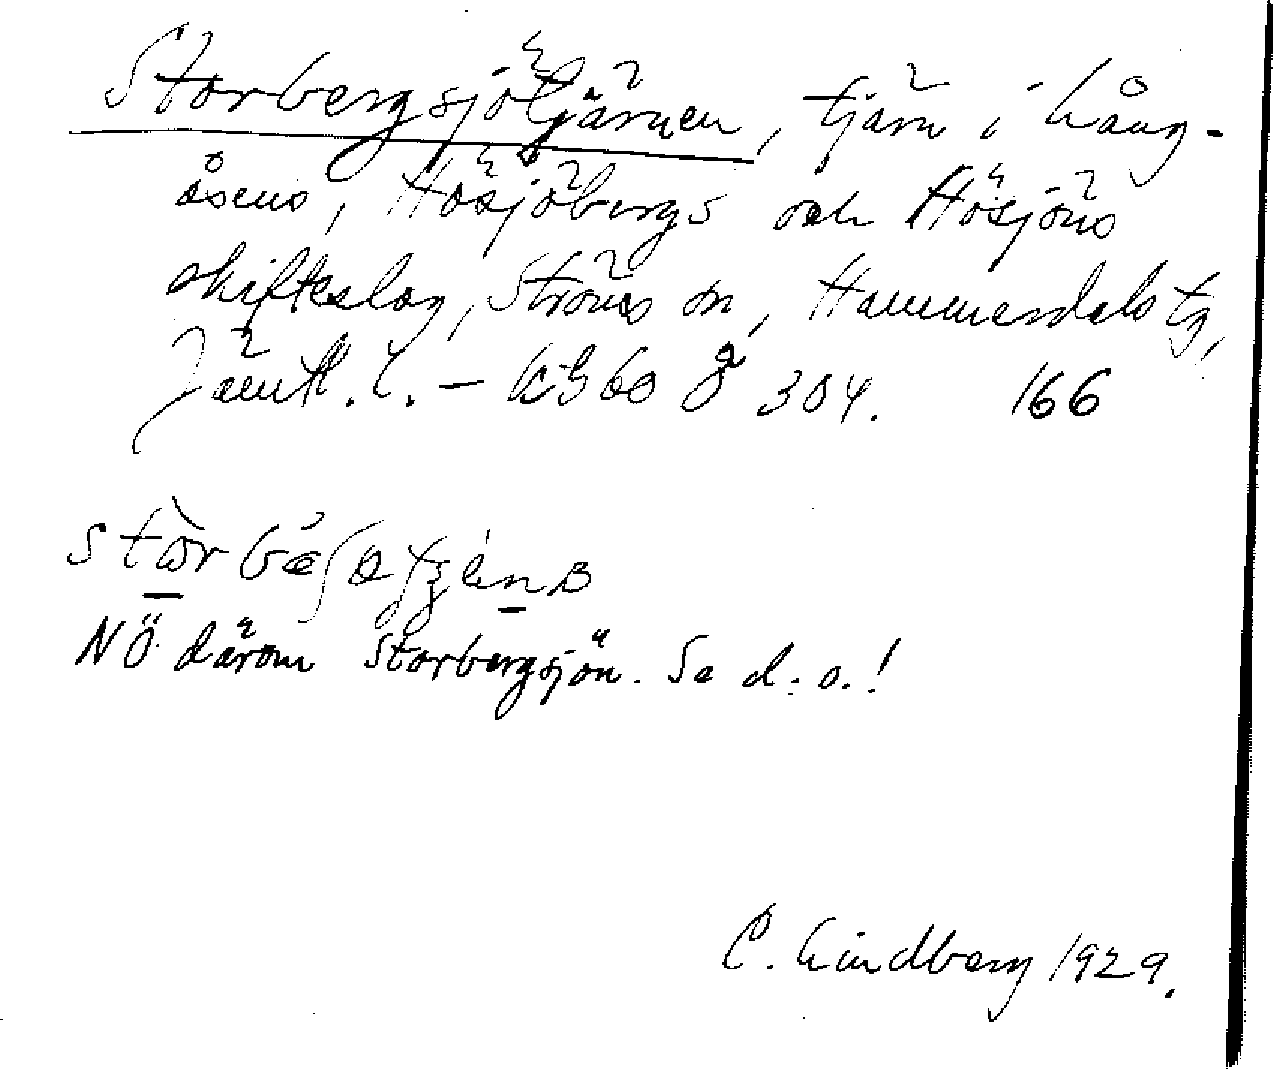 Storbergsjötjärnen, tjärn i Lång-
åsens, Hösjöbergs och Hösjöns
skifteslag, Ströms sn, Hammerdals tg,
Jämtl. l. – kbl 60 304. 166
NÖ därom Storbergsjön. Se d. o.!
C. Lindberg 1929.